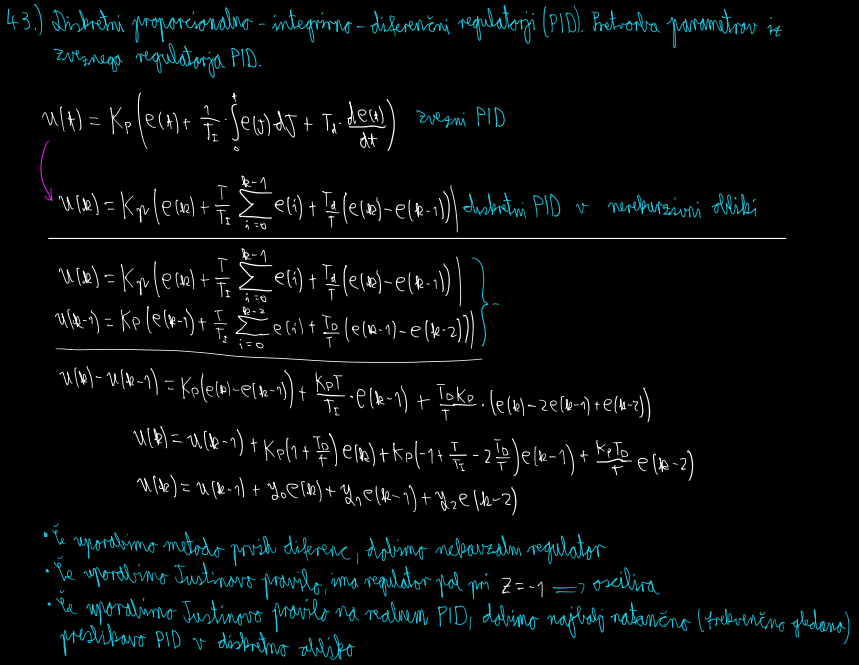 43.) Diskretni proporcionalno - integrirno - diferenčni regulatorji (PID). Pretvorba parametrov iz
zveznega regulatorja PID.
u(t) = K_P (e(t) + 1/T_I · ∫_0^t e(τ) dτ + T_d · de(t)/dt) zvezni PID
u(k) = K_p (e(k) + T/T_I ∑_{i=0}^{k-1} e(i) + T_d/T (e(k) - e(k-1))) diskretni PID v nerekurzivni obliki
u(k) = K_p (e(k) + T/T_I ∑_{i=0}^{k-1} e(i) + T_d/T (e(k) - e(k-1))) } -
u(k-1) = K_P (e(k-1) + T/T_I ∑_{i=0}^{k-2} e(i) + T_D/T (e(k-1) - e(k-2)))
u(k) - u(k-1) = K_P(e(k) - e(k-1)) + K_P T/T_I · e(k-1) + T_D K_P/T · (e(k) - 2e(k-1) + e(k-2))
u(k) = u(k-1) + K_P(1 + T_D/T) e(k) + K_P(-1 + T/T_I - 2 T_D/T) e(k-1) + K_P T_D/T e(k-2)
u(k) = u(k-1) + y_0 e(k) + y_1 e(k-1) + y_2 e(k-2)
• Če uporabimo metodo prvih diferenc, dobimo nekavzalni regulator
• Če uporabimo Tustinovo pravilo, ima regulator pol pri z = -1 ⟹ oscilira
• Če uporabimo Tustinovo pravilo na realnem PID, dobimo najbolj natančno (frekvenčno gledano)
preslikavo PID v diskretno obliko